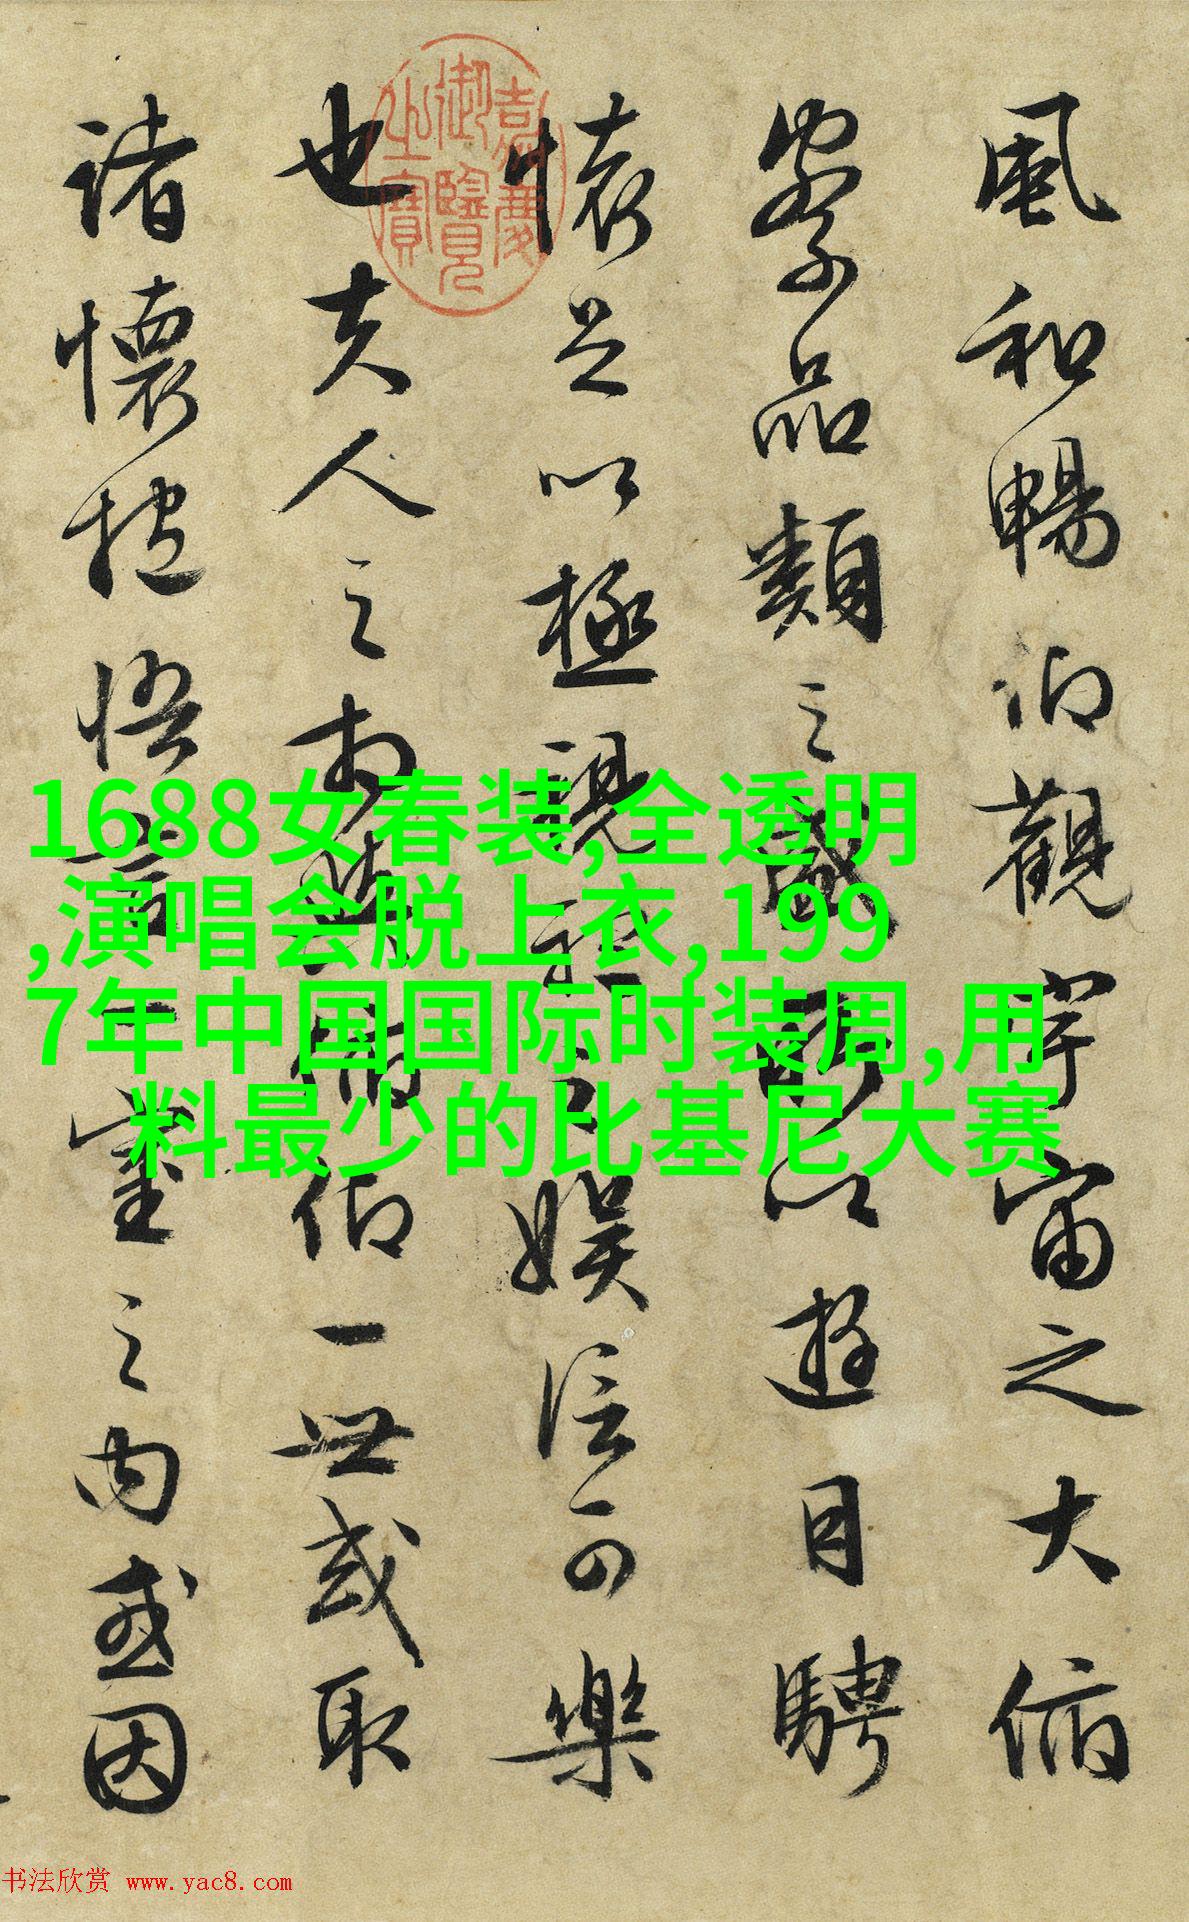 風和暢仰觀宇宙之大俯
察品類之盛所以遊目騁
懷足以極視聽之娛信可樂
也夫人之相與俯仰一世或取
諸懷抱悟言一室之內或因
嘉慶
御覽
之寶
1688女春装,全透明
,演唱会脱上衣,199
7年中国国际时装周,用
料最少的比基尼大赛
书法欣赏 www.yac8.com